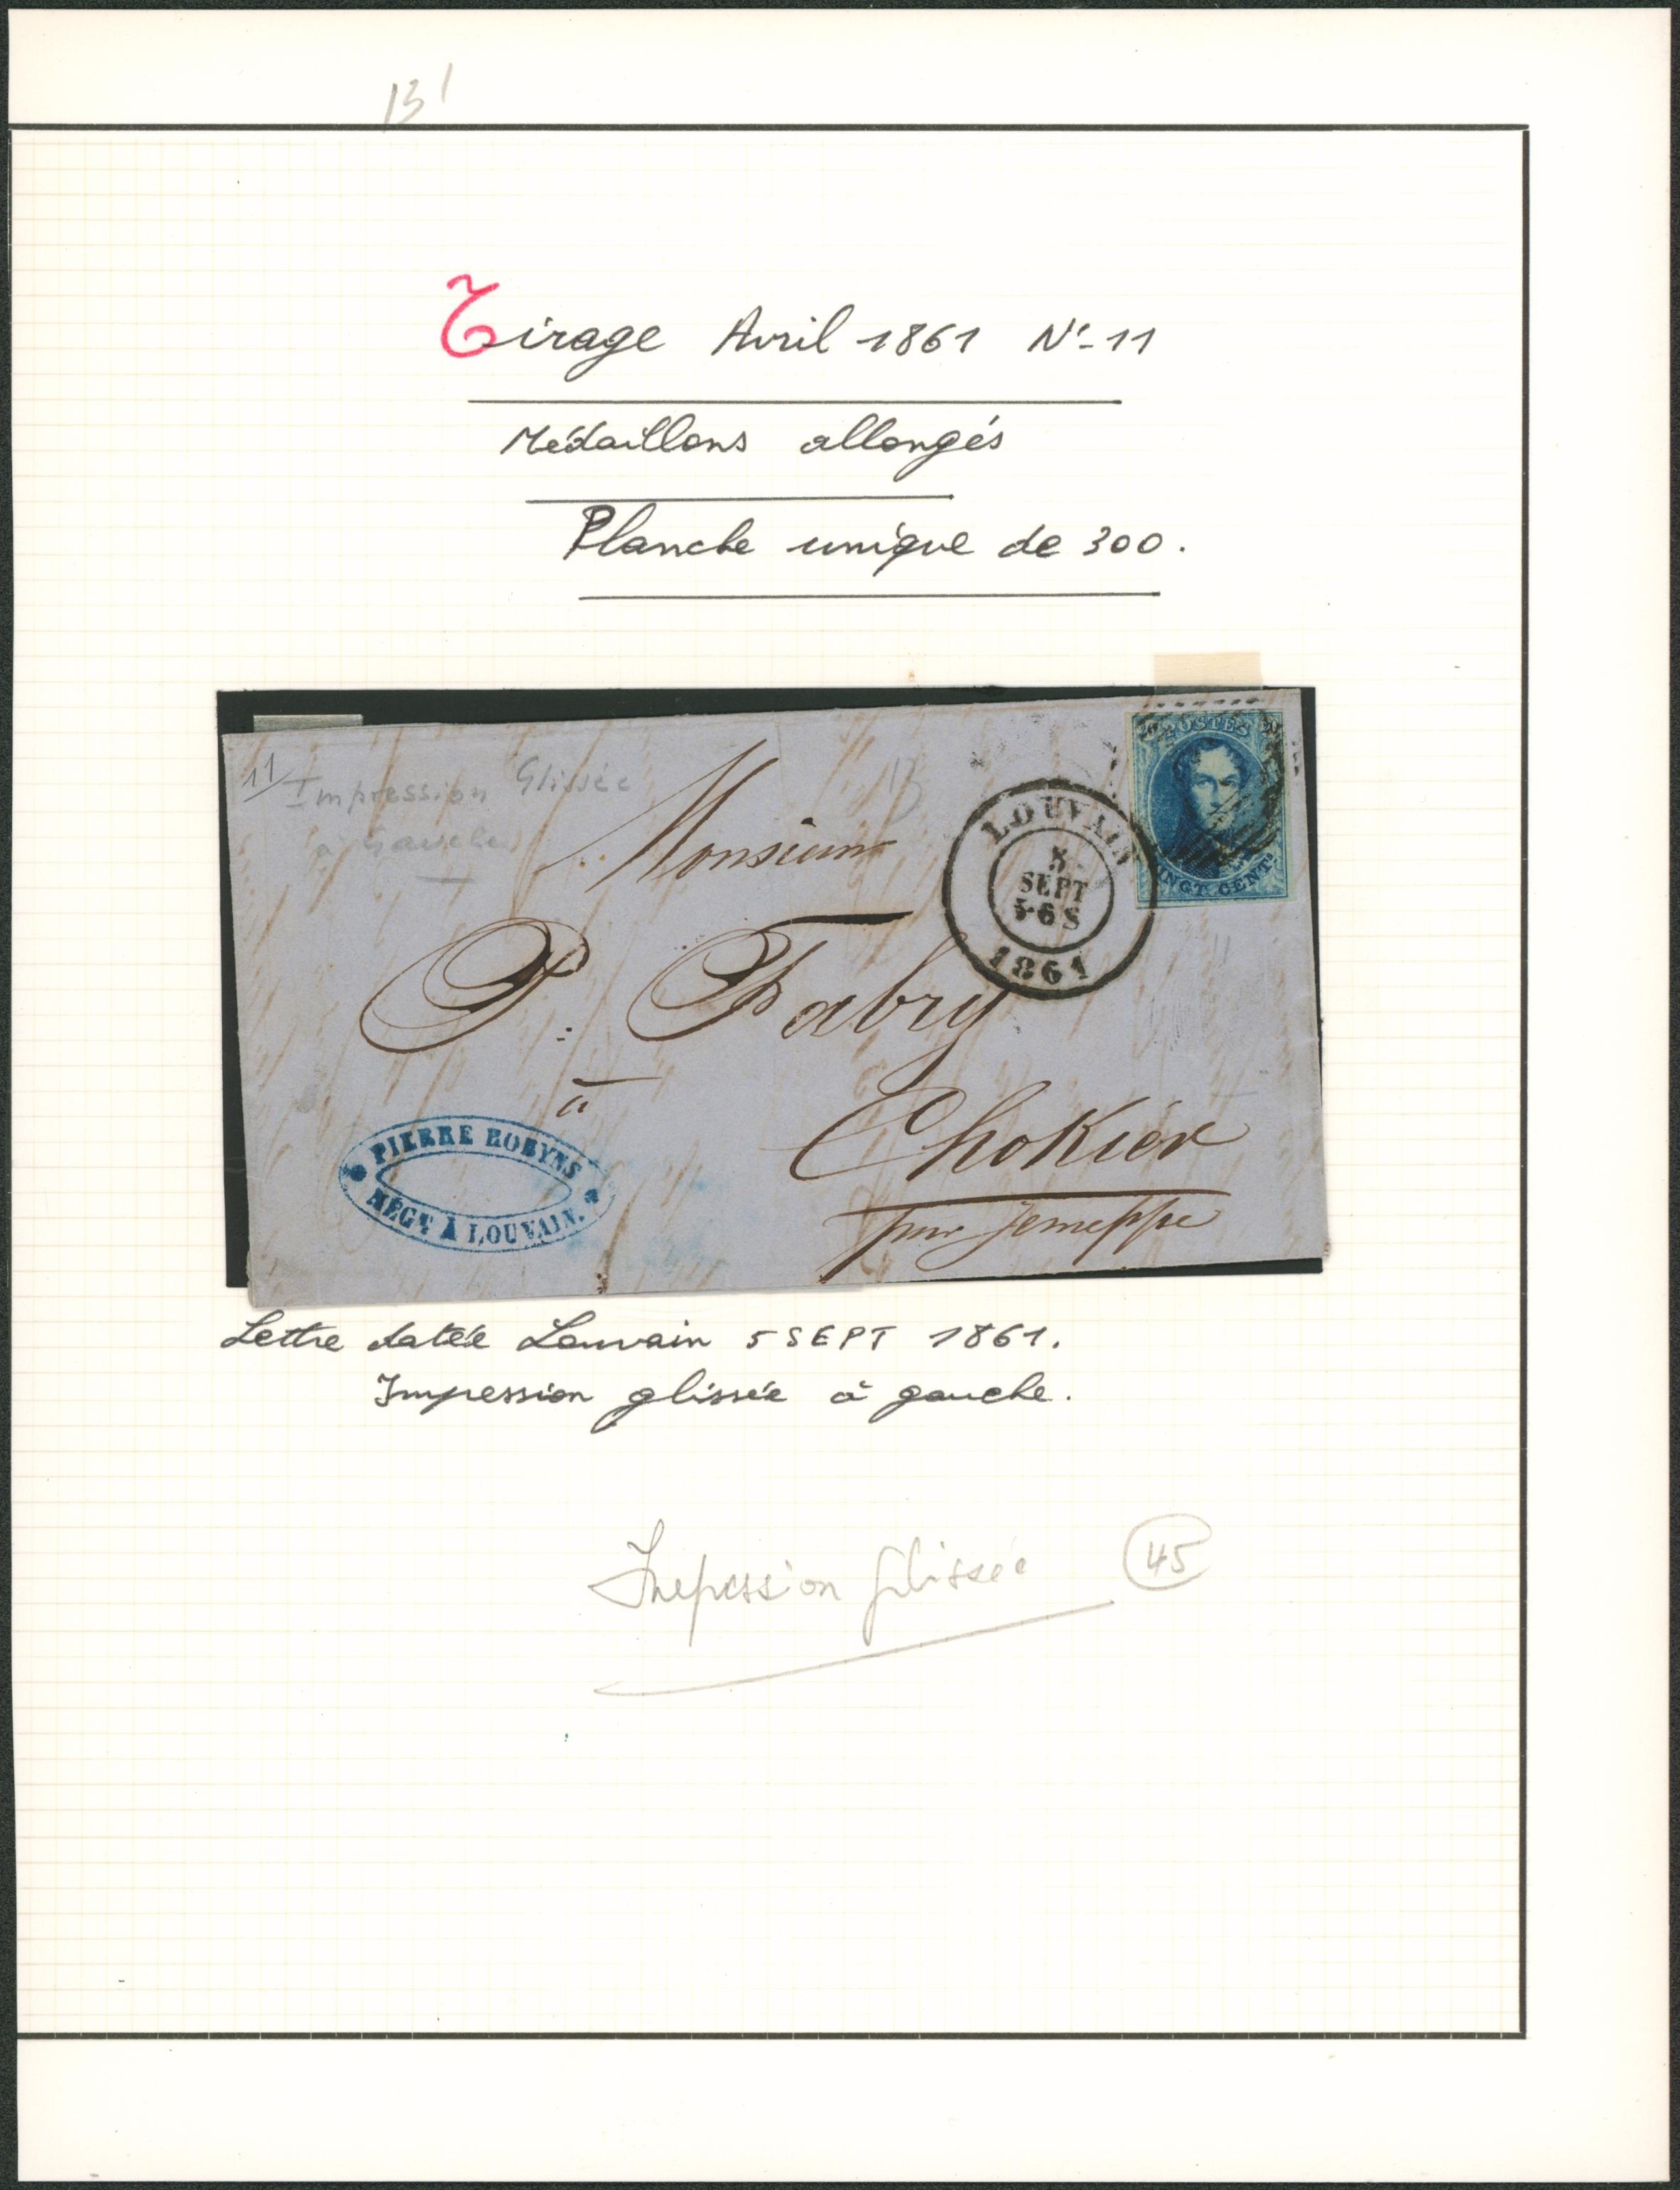 131
Tirage Avril 1861 N°-11
Médaillons allongés
Planche unique de 300.
11
Impression Glissée
à Gauche
13
POSTES
20 20
VINGT CENTS
LOUVAIN
5
SEPT
5-6 S
1861
Monsieur
P. Fabry
à
Chokier
par Jemeppe
PIERRE ROBYNS
NÉGT À LOUVAIN.
Lettre datée Louvain 5 SEPT 1861.
Impression glissée à gauche.
Impression glissée 45